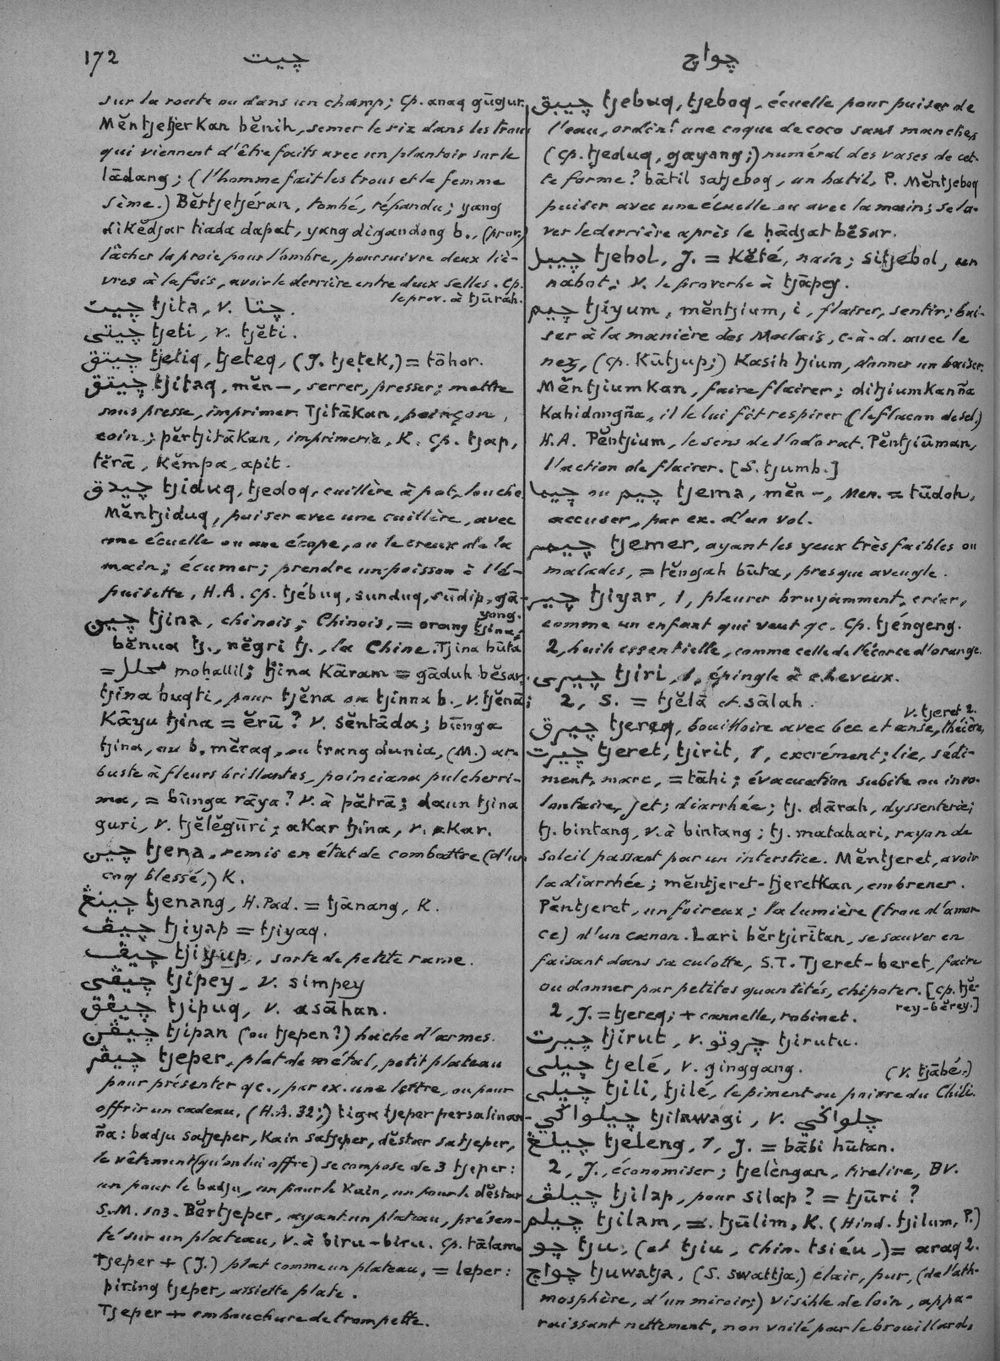 172
چيت
چواچ
sur la route ou dans un champ; Cp. anaq gūgur.
Mĕntjetjer Kan bĕnih, semer le riz dans les trous
qui viennent d'être faits avec un plantoir sur le
lādang; (l'homme fait les trous et la femme
sème.) Bĕrtjetjéran, tombé, répandu; yang
dikĕdjar tiada dapat, yang digandong b., (prov.)
lâcher la proie pour l'ombre, poursuivre deux liè-
vres à la fois, avoir le derrière entre deux selles. Cp.
le prov. à tjūrah.
چيت tjita, v. چتا.
چيتي tjeti, v. tjĕti.
چيتق tjetiq, tjeteq, (J. tjeṭeK,) = tōhor.
چيتق tjitaq, mĕn—, serrer, presser; mettre
sous presse, imprimer. TjitāKan, poinçon,
coin; pĕrtjitāKan, imprimerie, K. Cp. tjap,
tĕrā, Kĕmpa, apit.
چيدق tjiduq, tjedoq, cuillère à pot, louche
Mĕntjiduq, puiser avec une cuillère, avec
une écuelle ou une écope, ou le creux de la
main; écumer; prendre un poisson à l'é-
puisette, H.A. Cp. tjébuq, sunduq, sūdip, gā-
yong.
چين tjina, chinois; Chinois, = orang tjina;
bĕnua tj., nĕgri tj., la Chine. Tjina būta
= محلل moḥallil; tjina Kāram = gāduh bĕsar;
tjina buqti, pour tjĕna ou tjinna b., v. tjĕnā;
Kāyu tjina = ĕrū? v. sĕntāda; būnga
tjina, ou b. mĕraq, ou trang dunia, (M.) ar-
buste à fleurs brillantes, poinciana pulcherri-
ma, = būnga rāya? v. à pătrā; daun tjina
guri, v. tjĕlĕgūri; aKar tjina, v. aKar.
چين tjena, remis en état de combattre (d'un
coq blessé,) K.
چينڠ tjenang, H. Pad. = tjānang, K.
چيڤ tjiyap = tjiyaq.
چيڤ tjiyup, sorte de petite rame.
چيڤي tjipey, v. simpey
چيڤق tjipuq, v. asāhan.
چيڤن tjipan (ou tjepen?) hache d'armes.
چيڤر tjeper, plat de métal, petit plateau
pour présenter qc., par ex. une lettre, ou pour
offrir un cadeau, (H.A. 32;) tiga tjeper persalinan-
ña: badju satjeper, Kain satjeper, dĕstar satjeper,
le vêtement (qu'on lui offre) se compose de 3 tjeper:
un pour le badju, un pour le Kain, un pour le dĕstar
S.M. 103. Bĕrtjeper, ayant un plateau, présen-
té sur un plateau, v. à biru-biru. Cp. tālam.
Tjeper + (J.) plat comme un plateau, = leper:
piring tjeper, assiette plate.
Tjeper + embouchure de trompette.
چيبق tjebuq, tjeboq, écuelle pour puiser de
l'eau, ordint une coque de coco sans manche,
(Cp. tjeduq, gayang;) numéral des vases de cet-
te forme? bātil satjeboq, un batil, P. Mĕntjeboq
puiser avec une écuelle ou avec la main; se la-
ver le derrière après le ḥādjat bĕsar.
چيبل tjebol, J. = Kĕté, nain; sitjebol, un
nabot; v. le proverbe à tjāpey.
چيم tjiyum, mĕntjium, i, flairer, sentir; bai-
ser à la manière des Malais, c-à-d. avec le
nez, (Cp. Kūtjup;) Kasih tjium, donner un baiser,
MĕntjiumKan, faire flairer; ditjiumKanña
Kahidongña, il le lui fit respirer (le flacon de sel,)
H.A. Pĕntjium, le sens de l'odorat. Pĕntjiūman,
l'action de flairer. [S. tjumb.]
چيما ou چيم tjema, mĕn—, Men. = tūdoh,
accuser, par ex. d'un vol.
چيمر tjemer, ayant les yeux très faibles ou
malades, = tĕngah būta, presque aveugle.
چير tjiyar, 1, pleurer bruyamment, crier,
comme un enfant qui veut qc. Cp. tjéngeng.
2, huile essentielle, comme celle de l'écorce d'orange.
چيري tjiri, 1, épingle à cheveux.
2, S. = tjĕlā et sālah.
v. tjeret 2.
چيرق tjereq, bouilloire avec bec et anse, théière,
چيرت tjeret, tjirit, 1, excrément; lie, sédi-
ment, marc, = tāhi; évacuation subite ou invo-
lontaire, jet; diarrhée; tj. dārah, dyssenterie;
tj. bintang, v. à bintang; tj. matahari, rayon de
soleil passant par un interstice. Mĕntjeret, avoir
la diarrhée; mĕntjeret-tjeretKan, embrener.
Pĕntjeret, un foireux; la lumière (trou d'amor-
ce) d'un canon. Lari bĕrtjirītan, se sauver en
faisant dans sa culotte, S.T. Tjeret-beret, faire
ou donner par petites quantités, chipoter. [Cp. tjĕ-
rey-bĕrey.]
2, J. = tjereq; + cannelle, robinet.
چيرت tjirut, v. چروتو tjirutu.
چيلي tjelé, v. ginggang. (v. tjābé.)
چيلي tjili, tjilé, le piment ou poivre du Chili.
چيلواڬي tjilawagi, v. چلواڬي
چيلڠ tjeleng, 1, J. = bābi hūtan.
2, J., économiser; tjelèngan, tirelire, BV.
چيلڤ tjilap, pour silap? = tjūri?
چيلم tjilam, = tjūlim, K. (Hind. tjilum, P.)
چو tju, (et tjiu, chin. tsiéu,) = araq 2.
چواچ tjuwatja, (S. swattja,) clair, pur, (de l'ath-
mosphère, d'un miroir;) visible de loin, appa-
raissant nettement, non voilé par le brouillard,